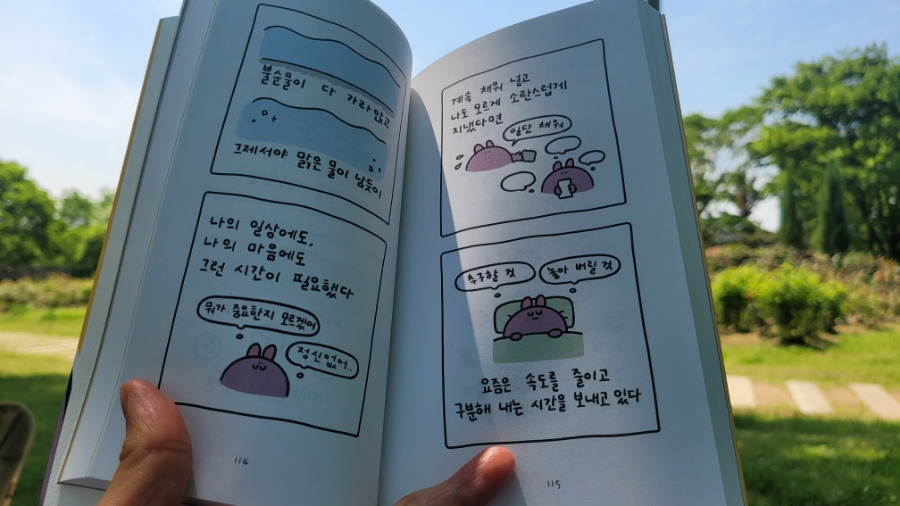 불순물이 다 가라앉고
그제서야 맑은 물이 남듯이
나의 일상에도,
나의 마음에도
그런 시간이 필요했다
뭐가 중요한지 모르겠어
정신없어..
114
계속 채워 넣고
나도 모르게 소란스럽게
지냈다면
일단 채워
추구할 것
놓아 버릴 것
요즘은 속도를 줄이고
구분해 내는 시간을 보내고 있다
115